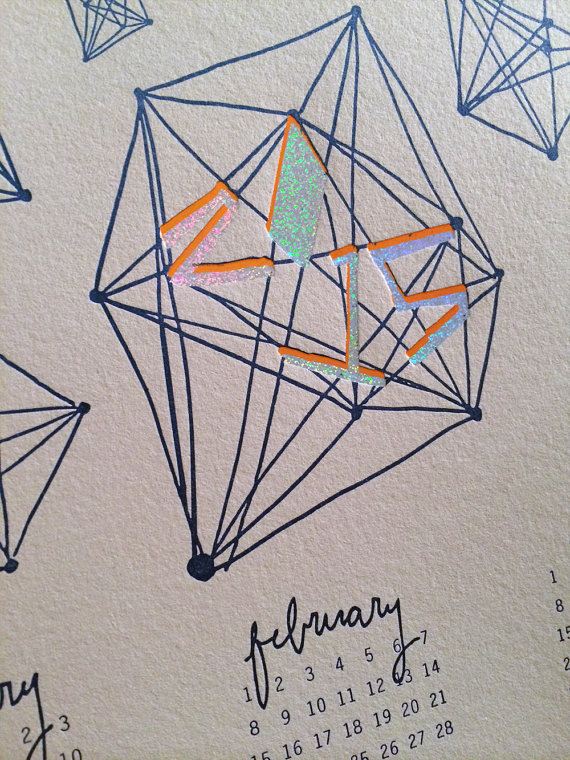 2015
february
1 2 3 4 5 6 7
8 9 10 11 12 13 14
15 16 17 18 19 20 21
25 26 27 28
ry
2 3
10
1
8
15
2